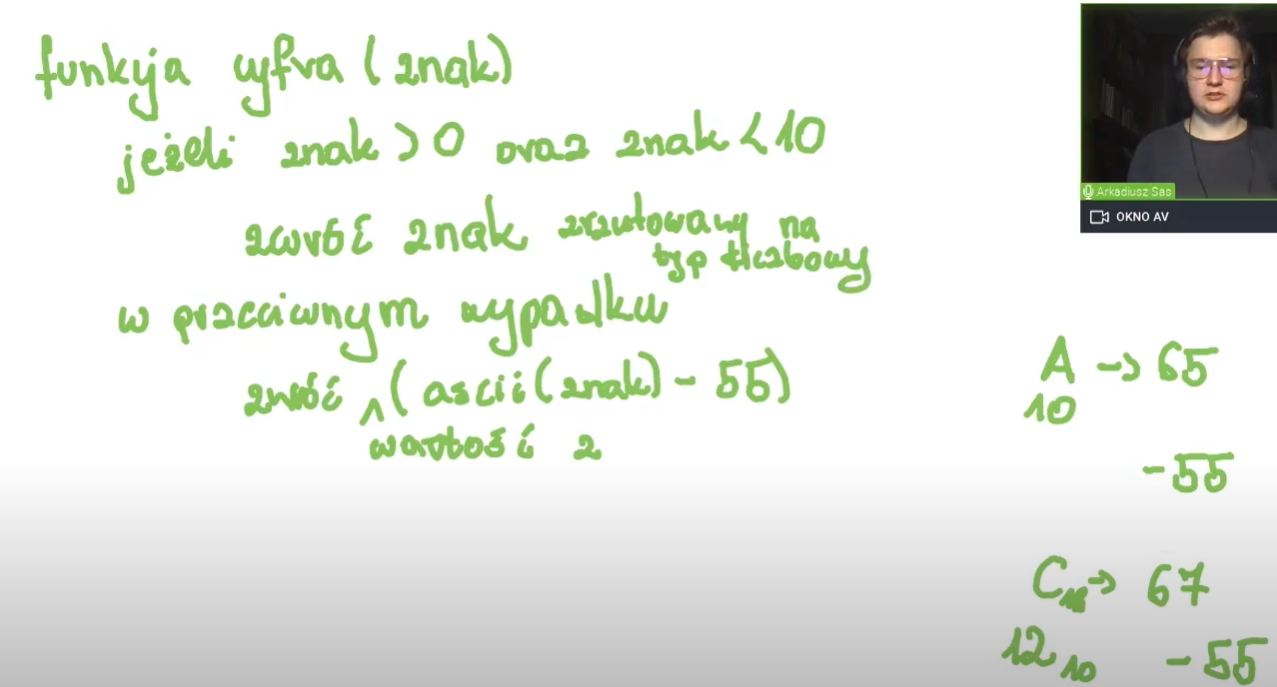 funkcja cyfra (znak)
jeżeli znak > 0 oraz znak < 10
zwróć znak zrzutowany na
typ liczbowy
w przeciwnym wypadku
zwróć (ascii(znak) - 55)
wartość z
A -> 65
10
-55
C16 -> 67
12 10 -55
Arkadiusz Sas
OKNO AV